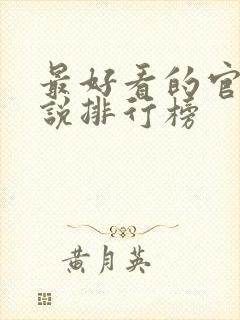 最好看的官
說排行榜
黃月英